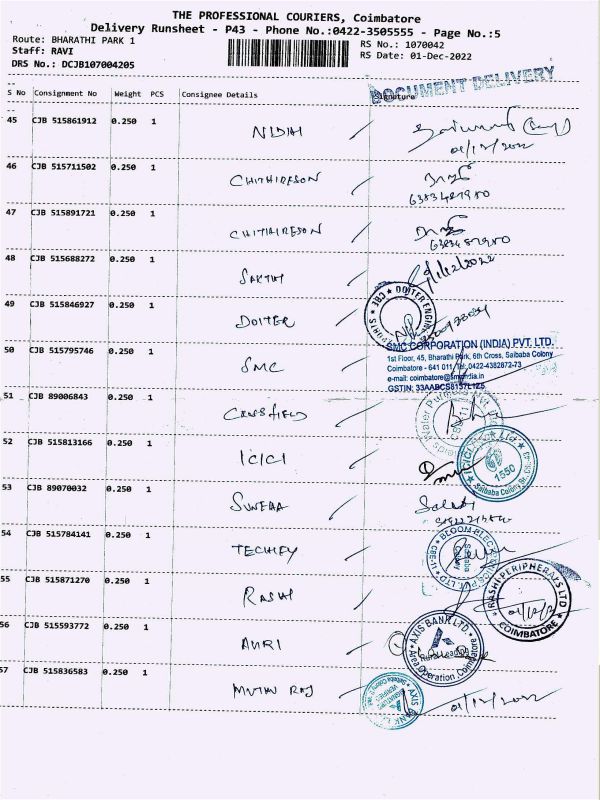 THE PROFESSIONAL COURIERS, Coimbatore
Delivery Runsheet - P43 - Phone No.:0422-3505555 - Page No.:5
Route: BHARATHI PARK 1 RS No.: 1070042
Staff: RAVI RS Date: 01-Dec-2022
DRS No.: DCJB107004205
DOCUMENT DELIVERY
S No Consignment No Weight PCS Consignee Details Signature
45 CJB 515861912 0.250 1 NIDHI
01/12/2022
46 CJB 515711502 0.250 1 CHITHIRESON
6383487980
47 CJB 515891721 0.250 1 CHITHIRESON
6383487980
48 CJB 515688272 0.250 1 SAKTHI
1/12/2022
49 CJB 515846927 0.250 1 DOITER
DOITER ENGINE
50 CJB 515795746 0.250 1 SMC
SMC CORPORATION (INDIA) PVT. LTD.
1st Floor, 45, Bharathi Park, 6th Cross, Saibaba Colony
Coimbatore - 641 011 Tel: 0422-4382872-73
e-mail: coimbatore@smcindia.in
GSTIN: 33AABCS8157L1Z5
51 CJB 89006843 0.250 1 CROSSFIELD
Water Purifiers Pvt.
52 CJB 515813166 0.250 1 ICICI
ICICI Ltd
1550
Saibaba Colony Br.
53 CJB 89070032 0.250 1 SWEHA
54 CJB 515784141 0.250 1 TECHIFY
BLOOM ELECTRONICS
Saibaba Colony
55 CJB 515871270 0.250 1 RASHI
RASHI PERIPHERALS LTD
COIMBATORE
56 CJB 515593772 0.250 1 AURI
AXIS BANK LTD.
Area Operation, Coimbatore
57 CJB 515836583 0.250 1 MUTHU RAJ
AXIS BANK LTD
01/12/2022